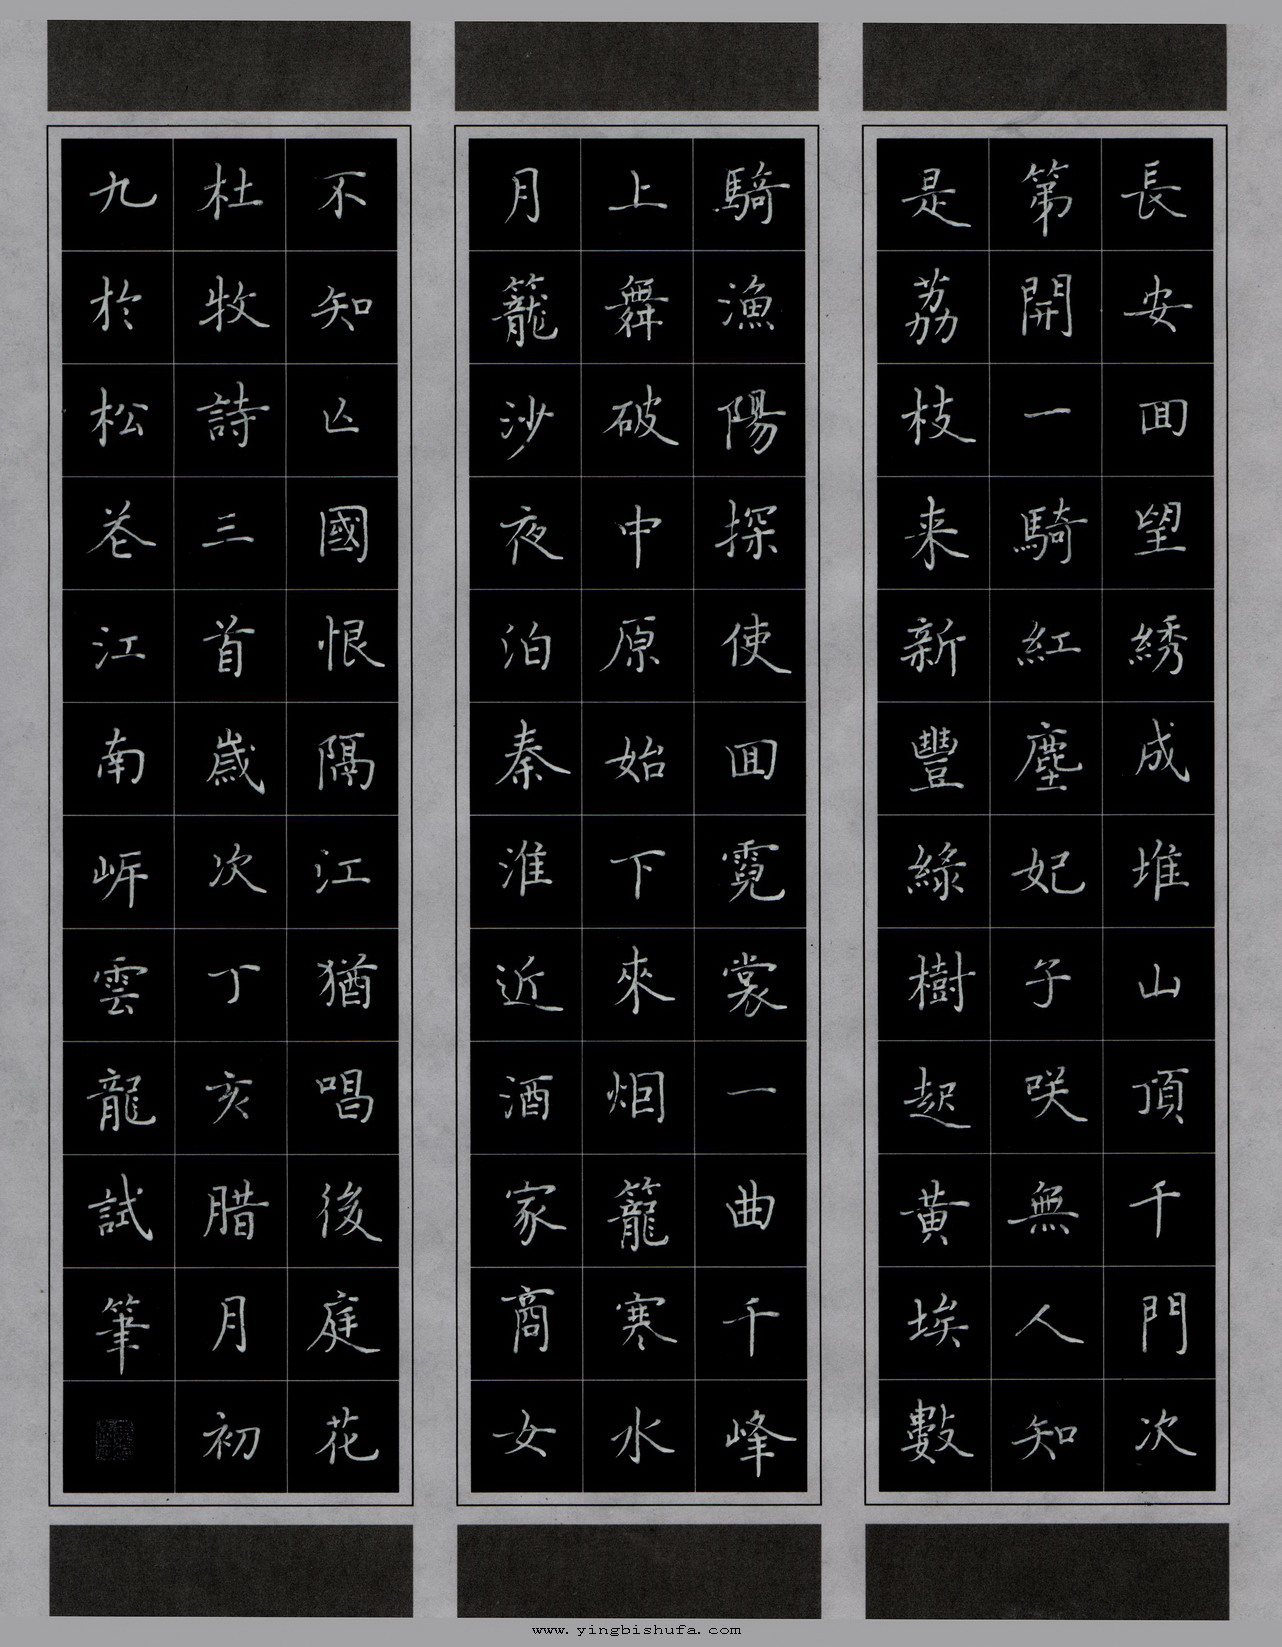 長安囬望綉成堆山頂千門次
第開一騎紅塵妃子咲無人知
是荔枝来新豐綠樹起黃埃數
騎漁陽探使囬霓裳一曲千峰
上舞破中原始下來烟籠寒水
月籠沙夜泊秦淮近酒家商女
不知亾國恨隔江猶唱後庭花
杜牧詩三首歲次丁亥腊月初
九於松巷江南岸雲龍試筆
www.yingbishufa.com